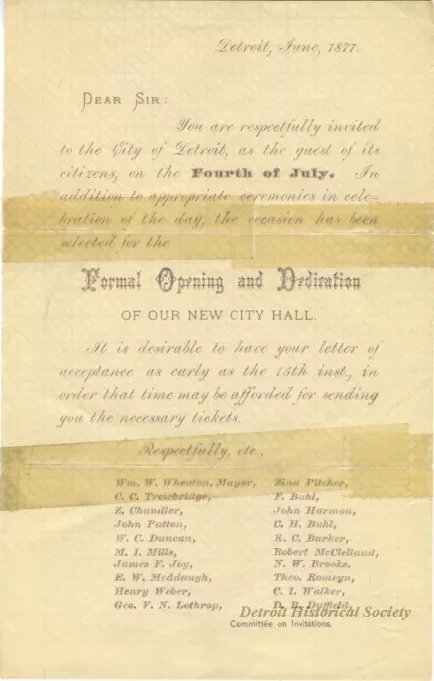 Detroit, June, 1877.
DEAR SIR:
You are respectfully invited
to the City of Detroit, as the guest of its
citizens, on the Fourth of July. In
addition to appropriate ceremonies in cele-
bration of the day, the occasion has been
selected for the
Formal Opening and Dedication
OF OUR NEW CITY HALL.
It is desirable to have your letter of
acceptance as early as the 15th inst., in
order that time may be afforded for sending
you the necessary tickets.
Respectfully, etc.,
Wm. W. Wheaton, Mayor, Zina Pitcher,
C. C. Trowbridge, F. Buhl,
Z. Chandler, John Harmon,
John Patton, C. H. Buhl,
W. C. Duncan, K. C. Barker,
M. I. Mills, Robert McClelland,
James F. Joy, N. W. Brooks,
E. W. Meddaugh, Theo. Romeyn,
Henry Weber, C. I. Walker,
Geo. V. N. Lothrop, D. B. Duffield,
Detroit Historical Society
Committee on Invitations.